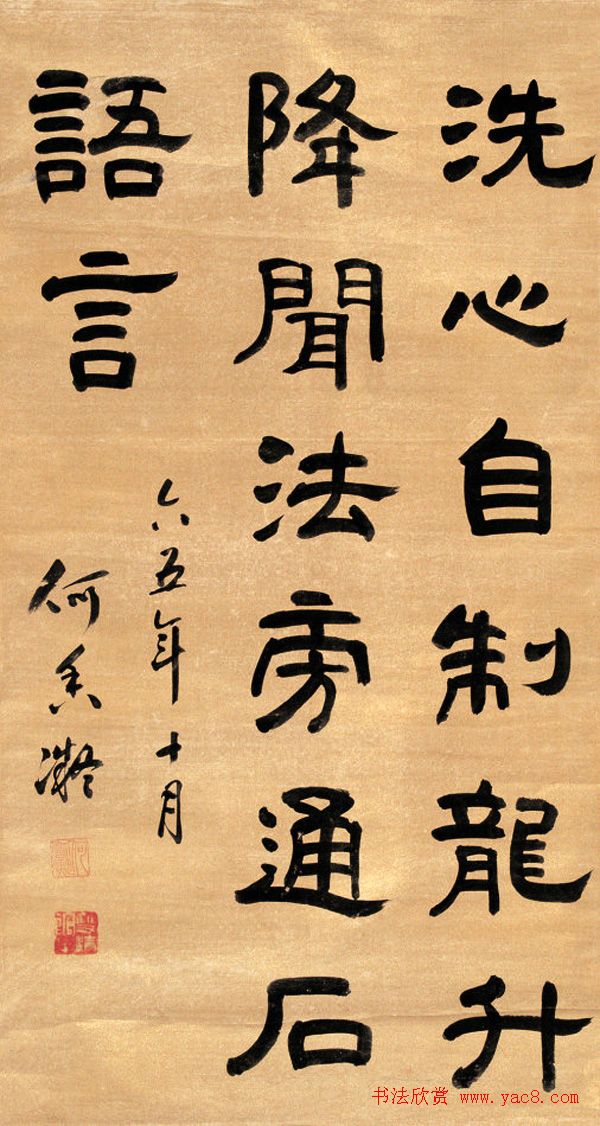 洗心自制龍升
降聞法旁通石
語言
六五年十月
何香凝
书法欣赏 www.yac8.com